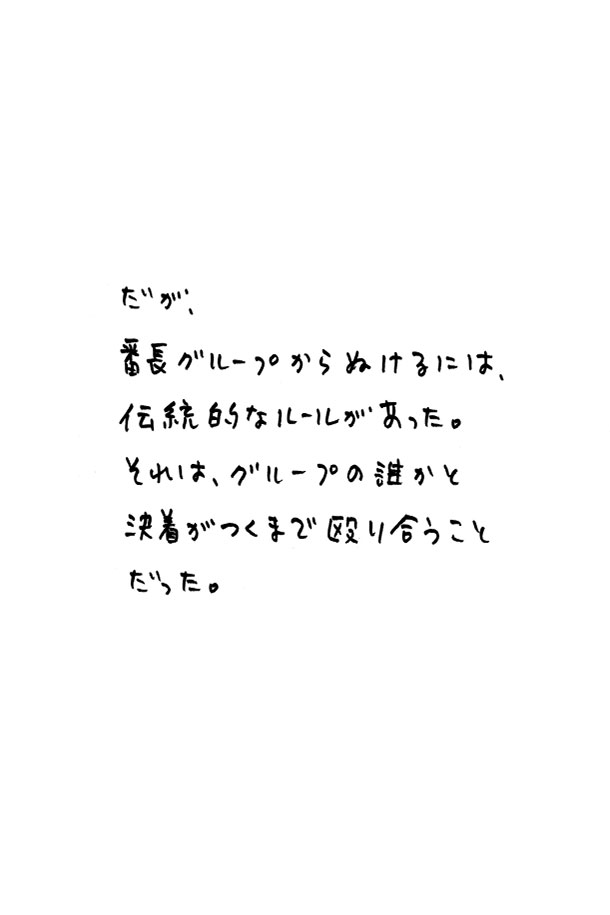 だが、
番長グループからぬけるには、
伝統的なルールがあった。
それは、グループの誰かと
決着がつくまで殴り合うこと
だった。